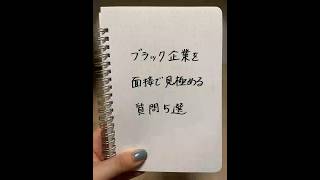 ブラック企業を
面接で見極める
質問5選